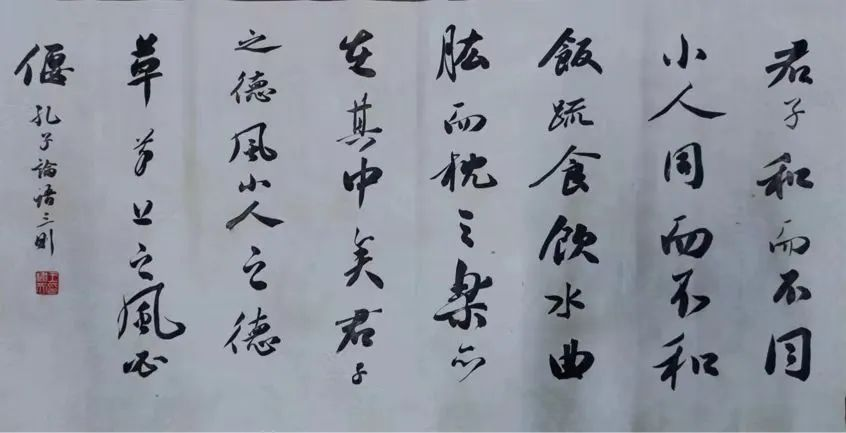 君子和而不同
小人同而不和
飯疏食飲水曲
肱而枕之樂亦
在其中矣君子
之德風小人之德
草草上之風必
偃
孔子論語三則